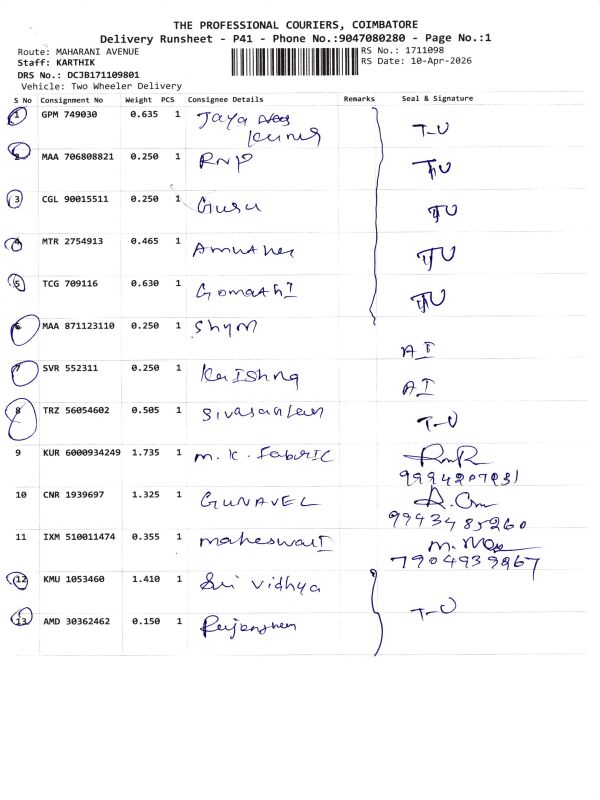 THE PROFESSIONAL COURIERS, COIMBATORE
Delivery Runsheet - P41 - Phone No.:9047080280 - Page No.:1
Route: MAHARANI AVENUE
RS No.: 1711098
Staff: KARTHIK
RS Date: 10-Apr-2026
DRS No.: DCJB171109801
Vehicle: Two Wheeler Delivery
S No Consignment No Weight PCS Consignee Details Remarks Seal & Signature
1 GPM 749030 0.635 1 Jaya T-U
2 MAA 706808821 0.250 1 RNP TU
3 CGL 90015511 0.250 1 Guru TU
4 MTR 2754913 0.465 1 TU
5 TCG 709116 0.630 1 GomathI TU
6 MAA 871123110 0.250 1 Shym AI
7 SVR 552311 0.250 1 AI
8 TRZ 56054602 0.505 1 T-U
9 KUR 6000934249 1.735 1 M.K. FabrIC
10 CNR 1939697 1.325 1 GUNAVEL
9943485260
11 IXM 510011474 0.355 1 maheswarI
12 KMU 1053460 1.410 1 Sri Vidhya T-U
13 AMD 30362462 0.150 1